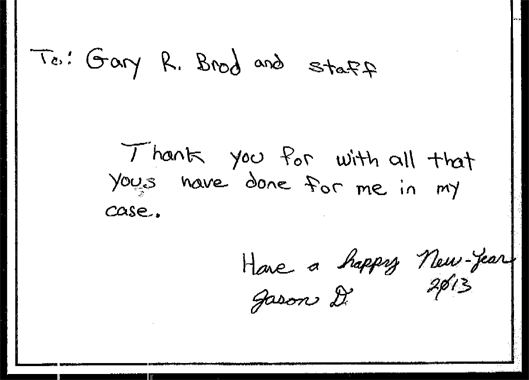 To: Gary R. Brod and staff
Thank you for with all that
yous have done for me in my
case.
Have a happy New-Year
2013
Jason D.